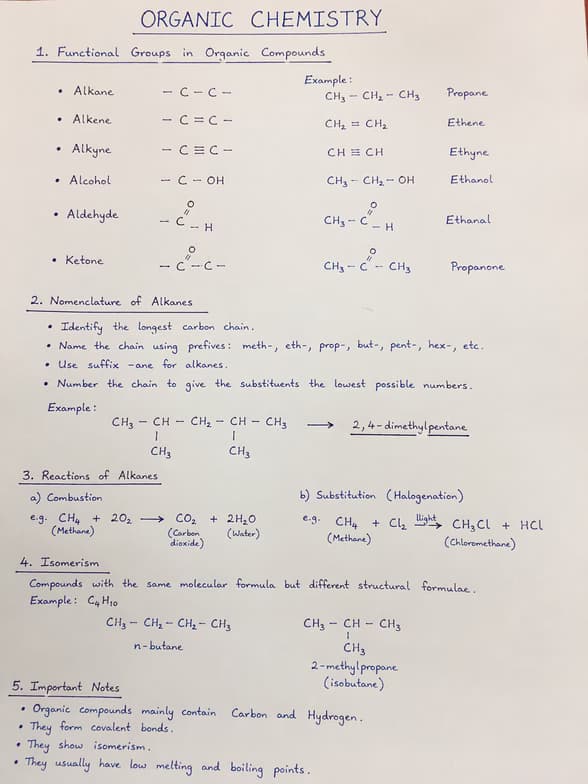 ORGANIC CHEMISTRY
1. Functional Groups in Organic Compounds
Example:
• Alkane – C – C – CH₃ – CH₂ – CH₃ Propane
• Alkene – C = C – CH₂ = CH₂ Ethene
• Alkyne – C ≡ C – CH ≡ CH Ethyne
• Alcohol – C – OH CH₃ – CH₂ – OH Ethanol
O O
• Aldehyde – C – H CH₃ – C – H Ethanal
O O
• Ketone – C – C – CH₃ – C – CH₃ Propanone
2. Nomenclature of Alkanes
• Identify the longest carbon chain.
• Name the chain using prefives: meth-, eth-, prop-, but-, pent-, hex-, etc.
• Use suffix -ane for alkanes.
• Number the chain to give the substituents the lowest possible numbers.
Example:
CH₃ – CH – CH₂ – CH – CH₃ ⟶ 2,4-dimethylpentane
| |
CH₃ CH₃
3. Reactions of Alkanes
a) Combustion
e.g. CH₄ + 2O₂ ⟶ CO₂ + 2H₂O
(Methane) (Carbon dioxide) (Water)
b) Substitution (Halogenation)
e.g. CH₄ + Cl₂ light→ CH₃Cl + HCl
(Methane) (Chloromethane)
4. Isomerism
Compounds with the same molecular formula but different structural formulae.
Example: C₄H₁₀
CH₃ – CH₂ – CH₂ – CH₃ CH₃ – CH – CH₃
|
n-butane CH₃
2-methylpropane
(isobutane)
5. Important Notes
• Organic compounds mainly contain Carbon and Hydrogen.
• They form covalent bonds.
• They show isomerism.
• They usually have low melting and boiling points.